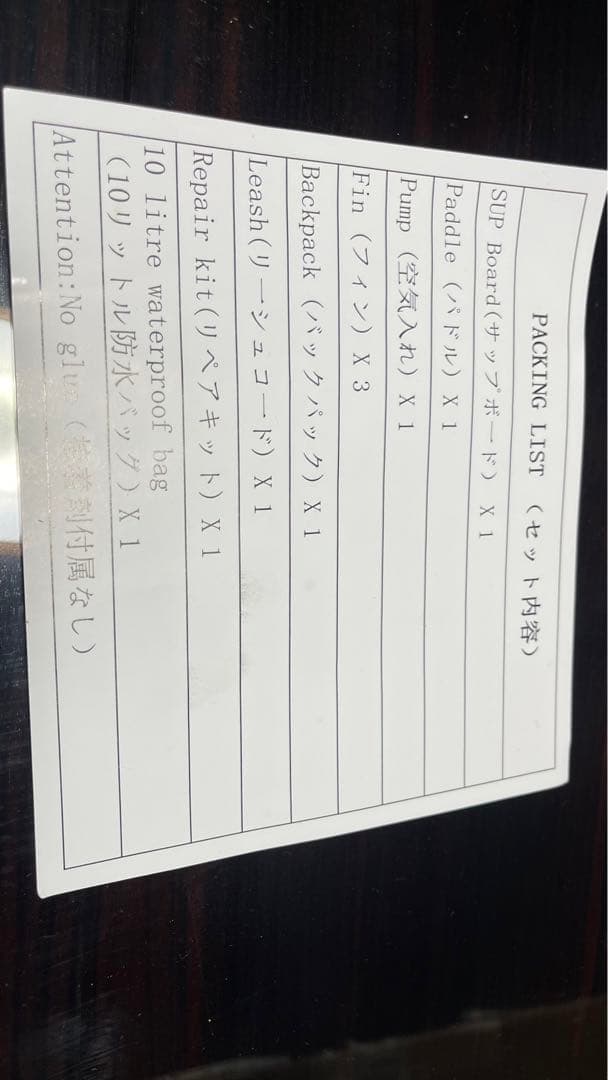 PACKING LIST （セット内容）
SUP Board(サップボード) X 1
Paddle (パドル) X 1
Pump (空気入れ) X 1
Fin (フィン) X 3
Backpack (バックパック) X 1
Leash(リーシュコード) X 1
Repair kit(リペアキット) X 1
10 litre waterproof bag
(10リットル防水バッグ) X 1
Attention:No glue (接着剤付属なし)